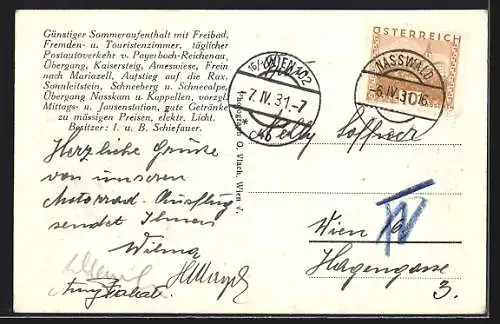 Günstiger Sommeraufenthalt mit Freibad,
Fremden- u. Touristenzimmer, täglicher
Postautoverkehr v. Payerbach-Reichenau,
Übergang, Kaisersteig, Ameswiese, Frein
nach Mariazell, Aufstieg auf die Rax,
Sonnleitstein, Schneeberg u. Schneealpe,
Übergang Nasskam u. Kappellen, vorzgl.
Mittags- u. Jausenstation, gute Getränke
zu mässigen Preisen, elektr. Licht.
Besitzer: I. u. B. Schiefauer.
Herzliche Grüße
von unserem
Motorrad-Ausflug
sendet Ihnen
Wilma
O. Vlach, Wien V.
WIEN 102
7. IV. 31.-7
ÖSTERREICH
NASSWALD
-6.IV.31
Nelly
Wien
IV
Hagengasse
3.